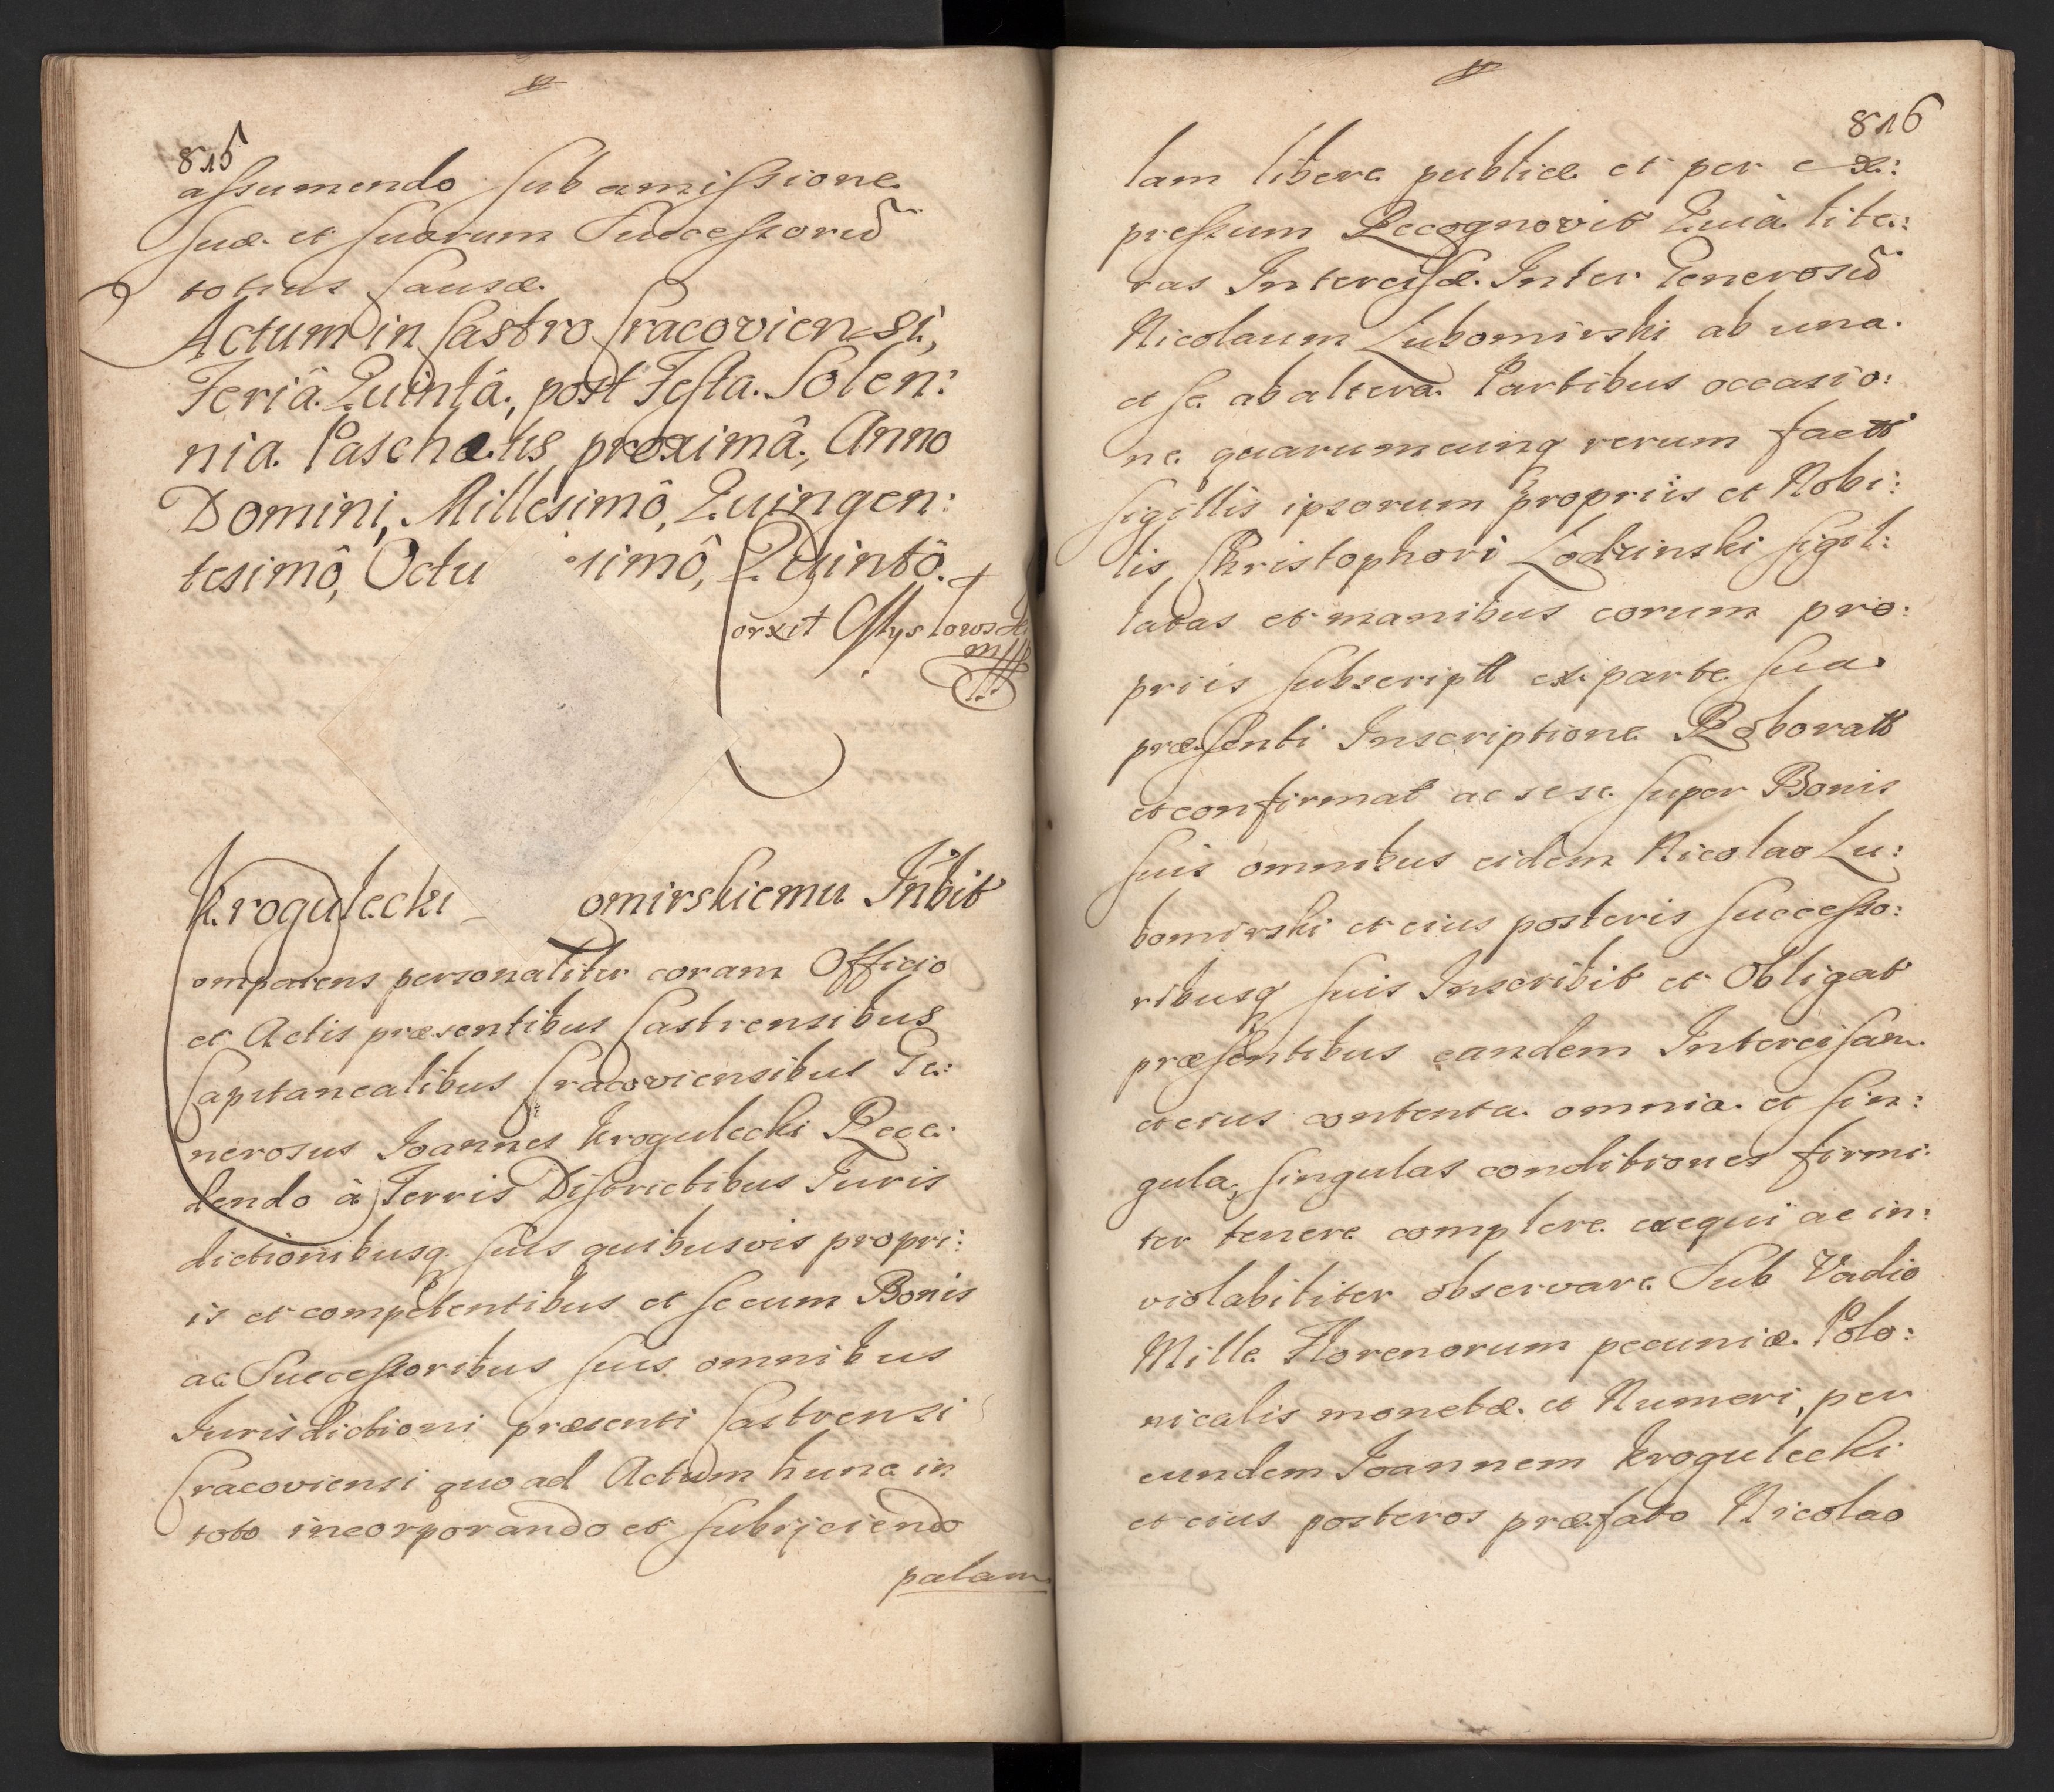 815
assumendo sub amissione
suæ et suorum Successorū
totius Causæ.
Actum in Castro Cracoviensi,
Feriâ Quintâ, post Festa Solen:
nia Paschatis proximâ, Anno
Domini, Millesimô, Quingen:
tesimô, Octu simô, Quintô.
Krogulecki omirskiemu Inbit
omparens personaliter coram Officio
et Actis præsentibus Castrensibus
Capitanealibus Cracoviensibus Ge:
nerosus Joannes Krogulecki Rece:
dendo à Terris Districtibus Juris
dictionibusq suis quibusvis propri:
is et competentibus et secum Bonis
ac Successoribus suis omnibus
Jurisdictioni præsenti Castrensi
Cracoviensi quo ad Actum hunc in
toto incorporando et subijciendo
palam
816
lam libere publice et per ex:
pressum Recognovit Quia lite:
ras Intercisæ Inter Generosū
Nicolaum Lubomirski ab una
et se ab altera Partibus occasio:
ne quarumcunq rerum fact
sigillis ipsorum propriis et Nobi:
lis Christophori Lodzinski sigil:
latas et manibus eorum pro:
priis subscript ex parte sua
præsenti Inscriptione Roborat
et confirmat ac sese super Bonis
suis omnibus eidem Nicolao Lu:
bomirski et eius posteris successo:
ribusq suis Inscribit et Obligat
præsentibus eandem Intercisam
et eius contenta omnia et sin:
gula, singulas conditiones firmi:
ter tenere complere exequi ac in:
violabiliter observare Sub Vadio
Mille Florenorum pecuniæ Polo:
nicalis monetæ et Numeri, per
eundem Joannem Krogulecki
et eius posteros præfato Nicolao